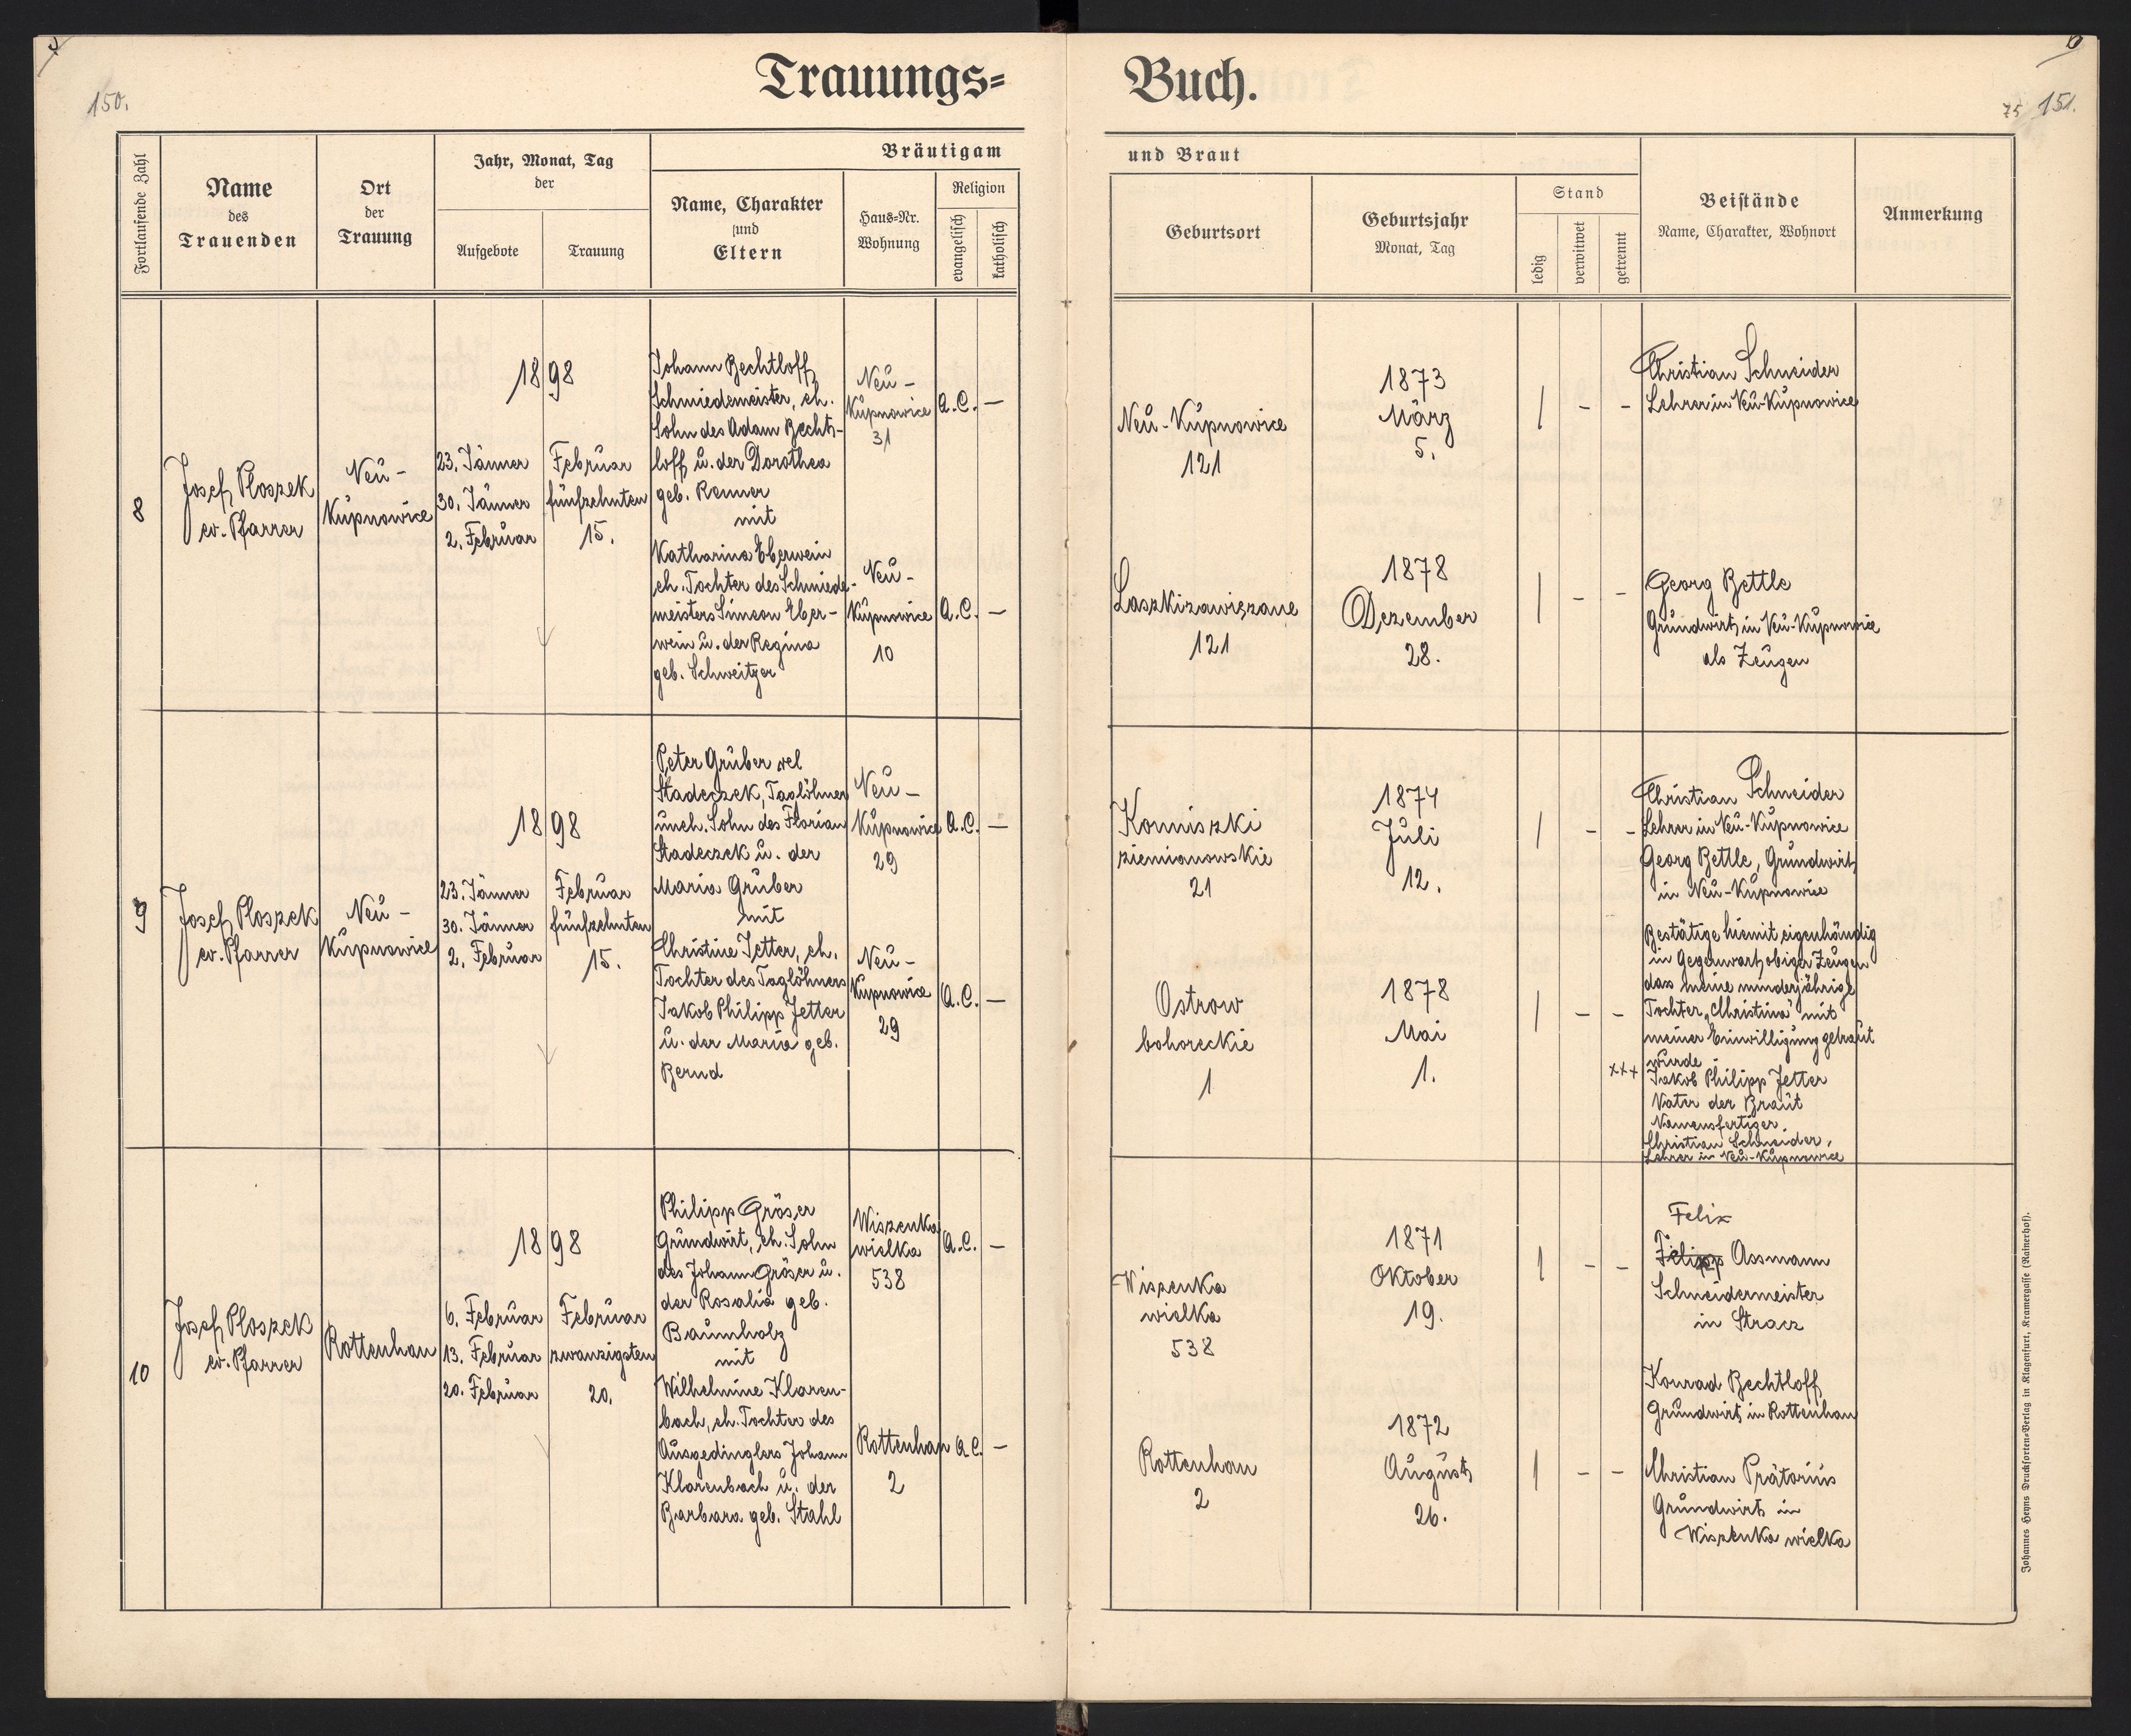 Trauungs=
Buch.
150.
75 151.
Fortlaufende Zahl
Name
des
Trauenden
Ort
der
Trauung
Jahr, Monat, Tag
der
Aufgebote
Trauung
Bräutigam
Name, Charakter
und
Eltern
Haus-Nr.
Wohnung
Religion
evangelisch
katholisch
und Braut
Geburtsort
Geburtsjahr
Monat, Tag
Stand
ledig
verwitwet
getrennt
Beistände
Name, Charakter, Wohnort
Anmerkung
8
Josef Ploszek
ev. Pfarrer
Neu-
Kupnowice
1898
23. Jänner
30. Jänner
2. Februar
Februar
fünfzehnten
15.
Johann Bechtloff
Schmiedemeister, eh.
Sohn des Adam Becht-
loff u. der Dorothea
geb. Renner
mit
Katharina Eberwein
eh. Tochter des Schmiede-
meisters Simeon Eber-
wein u. der Regina
geb. Schweitzer
Neu-
Kupnowice
31
A.C. —
Neu-
Kupnowice
10
A.C. —
Neu-Kupnowice
121
1873
März
5.
1 - -
Laszkizawiązane
121
1878
Dezember
28.
1 - -
Christian Schneider
Lehrer in Neu-Kupnowice
Georg Bettle
Grundwirt in Neu-Kupnowice
als Zeugen
9
Josef Ploszek
ev. Pfarrer
Neu-
Kupnowice
1898
23. Jänner
30. Jänner
2. Februar
Februar
fünfzehnten
15.
Peter Gruber vel
Stadeczek, Taglöhner
uneh. Sohn des Florian
Stadeczek u. der
Maria Gruber
mit
Christine Jetter, eh.
Tochter des Taglöhners
Jakob Philipp Jetter
u. der Maria geb.
Bernd
Neu-
Kupnowice
29
A.C. —
Neu-
Kupnowice
29
A.C. —
Koniuszki
ziemianowskie
21
1874
Juli
12.
1 - -
Ostrow
bohoreckie
1
1878
Mai
1.
1 - -
Christian Schneider
Lehrer in Neu-Kupnowice
Georg Bettle, Grundwirt
in Neu-Kupnowice
Bestätige hiemit eigenhändig
in Gegenwart obiger Zeugen
das meine minderjährige
Tochter „Christina" mit
meiner Einwilligung getraut
wurde.
+++ Jakob Philipp Jetter
Vater der Braut
Namensfertiger
Christian Schneider,
Lehrer in Neu-Kupnowice
10
Josef Ploszek
ev. Pfarrer
Rottenhan
1898
6. Februar
13. Februar
20. Februar
Februar
zwanzigsten
20.
Philipp Gröser
Grundwirt, eh. Sohn
des Johann Gröser u.
der Rosalia geb.
Baumholz
mit
Wilhelmine Klaren-
bach, eh. Tochter des
Ausgedinglers Johann
Klarenbach u. der
Barbara geb. Stahl
Wiszenka
wielka
538
A.C. —
Rottenhan
2
A.C. —
Wiszenka
wielka
538
1871
Oktober
19.
1 - -
Rottenhan
2
1872
August
26.
1 - -
Felix
Filipp Assmann
Schneidermeister
in Stracz
Konrad Bechtloff
Grundwirt in Rottenhan
Christian Prätorius
Grundwirt in
Wiszenka wielka
Johannes Heyns Drucksorten-Verlag in Klagenfurt, Kramergasse (Rainerhof).